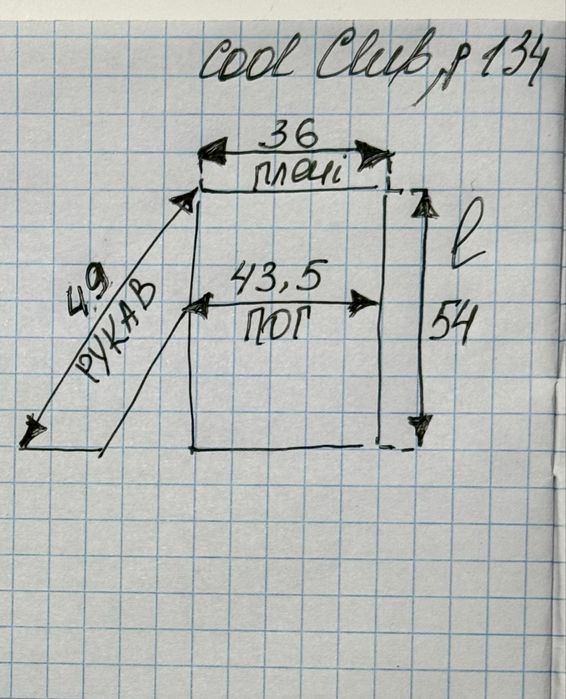 Cool Club, р 134
36
плечі
49
РУКАВ
43,5
ПОГ
l
54